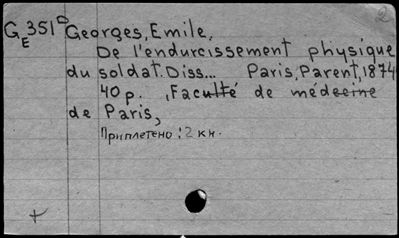 2
GE351D Georges, Emile.
De l'endurcissement physique
du soldat. Diss... Paris, Parent, 1874
40 p. , Faculté de médecine
de Paris,
Приплетено: 2 кн.
+